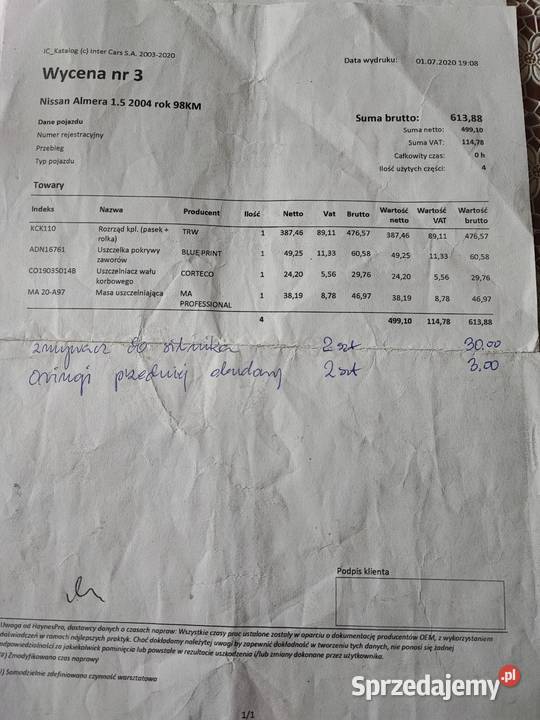 IC_Katalog (c) Inter Cars S.A. 2003-2020
Data wydruku: 01.07.2020 19:08
Wycena nr 3
Nissan Almera 1.5 2004 rok 98KM
Suma brutto: 613,88
Dane pojazdu
Suma netto: 499,10
Numer rejestracyjny
Suma VAT: 114,78
Przebieg
Całkowity czas: 0 h
Typ pojazdu
Ilość użytych części: 4
Towary
Indeks Nazwa Producent Ilość Netto Vat Brutto Wartość netto Wartość VAT Wartość brutto
KCK110 Rozrząd kpl. (pasek + rolka) TRW 1 387,46 89,11 476,57 387,46 89,11 476,57
ADN16761 Uszczelka pokrywy zaworów BLUE PRINT 1 49,25 11,33 60,58 49,25 11,33 60,58
CO19035014B Uszczelniacz wału korbowego CORTECO 1 24,20 5,56 29,76 24,20 5,56 29,76
MA 20-A97 Masa uszczelniająca MA PROFESSIONAL 1 38,19 8,78 46,97 38,19 8,78 46,97
4 499,10 114,78 613,88
zmywacz do silnika 2 szt 30.00
oringi przedniej obudowy 2 szt 3,00
Podpis klienta
Uwaga od HaynesPro, dostawcy danych o czasach napraw: Wszystkie czasy prac ustalone zostały w oparciu o dokumentację producentów OEM, z wykorzystaniem
doświadczeń w ramach najlepszych praktyk. Choć dokładamy należytej uwagi by zapewnić dokładność w tworzeniu tych danych, nie ponosi się żadnej
odpowiedzialności za jakiekolwiek pominięcia lub powstałe w rezultacie uszkodzenia i/lub zmiany dokonane przez użytkownika.
#) Zmodyfikowano czas naprawy
) Samodzielnie zdefiniowano czynność warsztatową
1/1
Sprzedajemy.pl